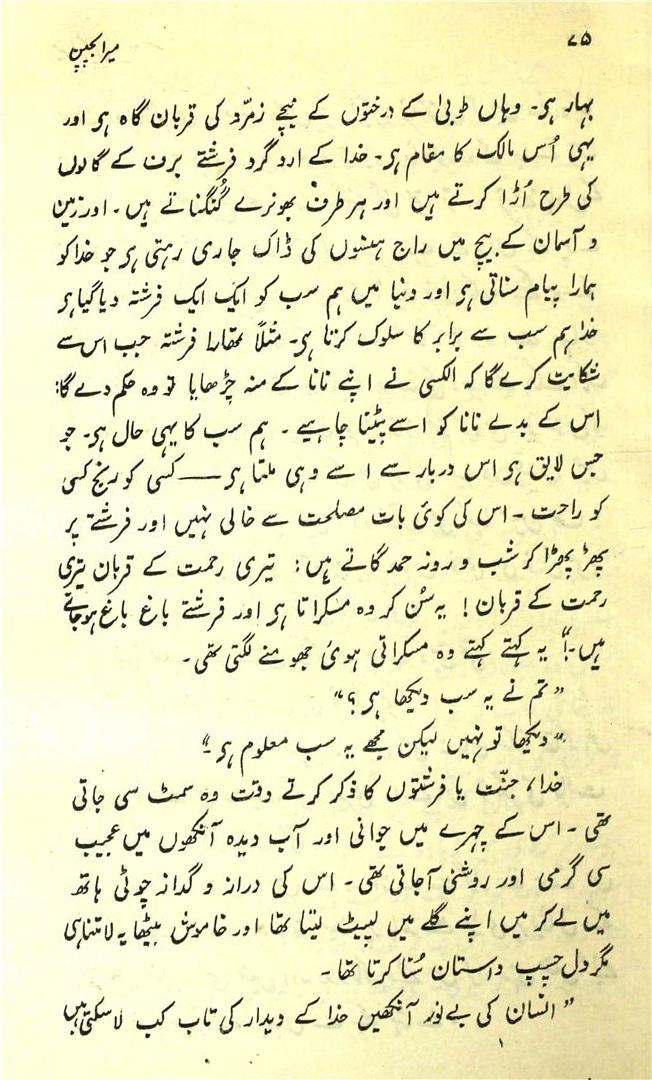 ۷۵
میرا بچپن
بہار ہو۔ وہاں طوبیٰ کے درختوں کے نیچے زمرّد کی قربان گاہ ہو اور
یہی اُس مالک کا مقام ہو۔ خدا کے ارد گرد فرشتے برف کے گالوں
کی طرح اُڑا کرتے ہیں اور ہر طرف بھونرے گُنگناتے ہیں۔ اور زمین
و آسمان کے بیچ میں راج ہنسوں کی ڈاک جاری رہتی ہو جو خدا کو
ہمارا پیام سناتی ہو اور دنیا میں ہم سب کو ایک ایک فرشتہ دیا گیا ہو
خدا ہم سب سے برابر کا سلوک کرتا ہو۔ مثلاً تمھارا فرشتہ جب اس سے
شکایت کرے گا کہ الکسی نے اپنے نانا کے منہ چڑھایا تو وہ حکم دے گا:
اس کے بدلے نانا کو اسے پیٹنا چاہیے ۔ ہم سب کا یہی حال ہو۔ جو
جس لایق ہو اس دربار سے اسے وہی ملتا ہو —— کسی کو رنج کسی
کو راحت ۔ اس کی کوئی بات مصلحت سے خالی نہیں اور فرشتے پر
پھڑ پھڑا کر شب و روز حمد گاتے ہیں: تیری رحمت کے قربان تیری
رحمت کے قربان! یہ سُن کر وہ مسکراتا ہو اور فرشتے باغ باغ ہو جاتے
ہیں۔!“ یہ کہتے کہتے وہ مسکراتی ہوئی جھومنے لگتی تھی۔
”تم نے یہ سب دیکھا ہو؟“
”دیکھا تو نہیں لیکن مجھے یہ سب معلوم ہو۔“
خدا، جنّت یا فرشتوں کا ذکر کرتے وقت وہ سمٹ سی جاتی
تھی ۔ اس کے چہرے میں جوانی اور آب دیدہ آنکھوں میں عجیب
سی گرمی اور روشنی آجاتی تھی۔ اس کی دراز و گداز چوٹی ہاتھ
میں لے کر میں اپنے گلے میں لپیٹ لیتا تھا اور خاموش بیٹھا یہ لامتناہی
مگر دل چسپ داستان سُنا کرتا تھا ۔
”انسان کی بے نور آنکھیں خدا کے دیدار کی تاب کب لا سکتی ہیں